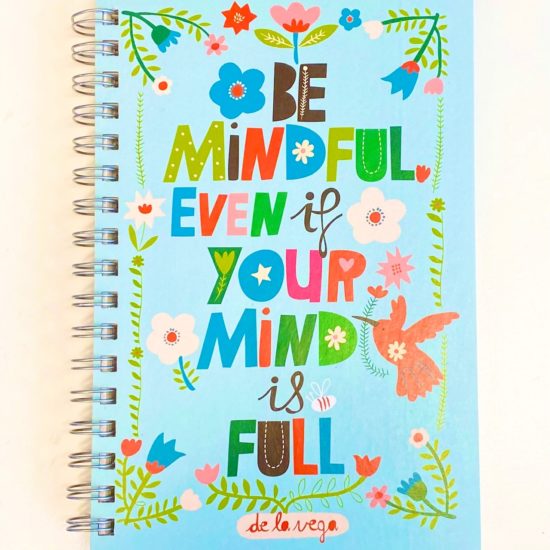 BE
MiNDFUL,
EVEN if
YOUR
MiND
is
FULL
de la vega